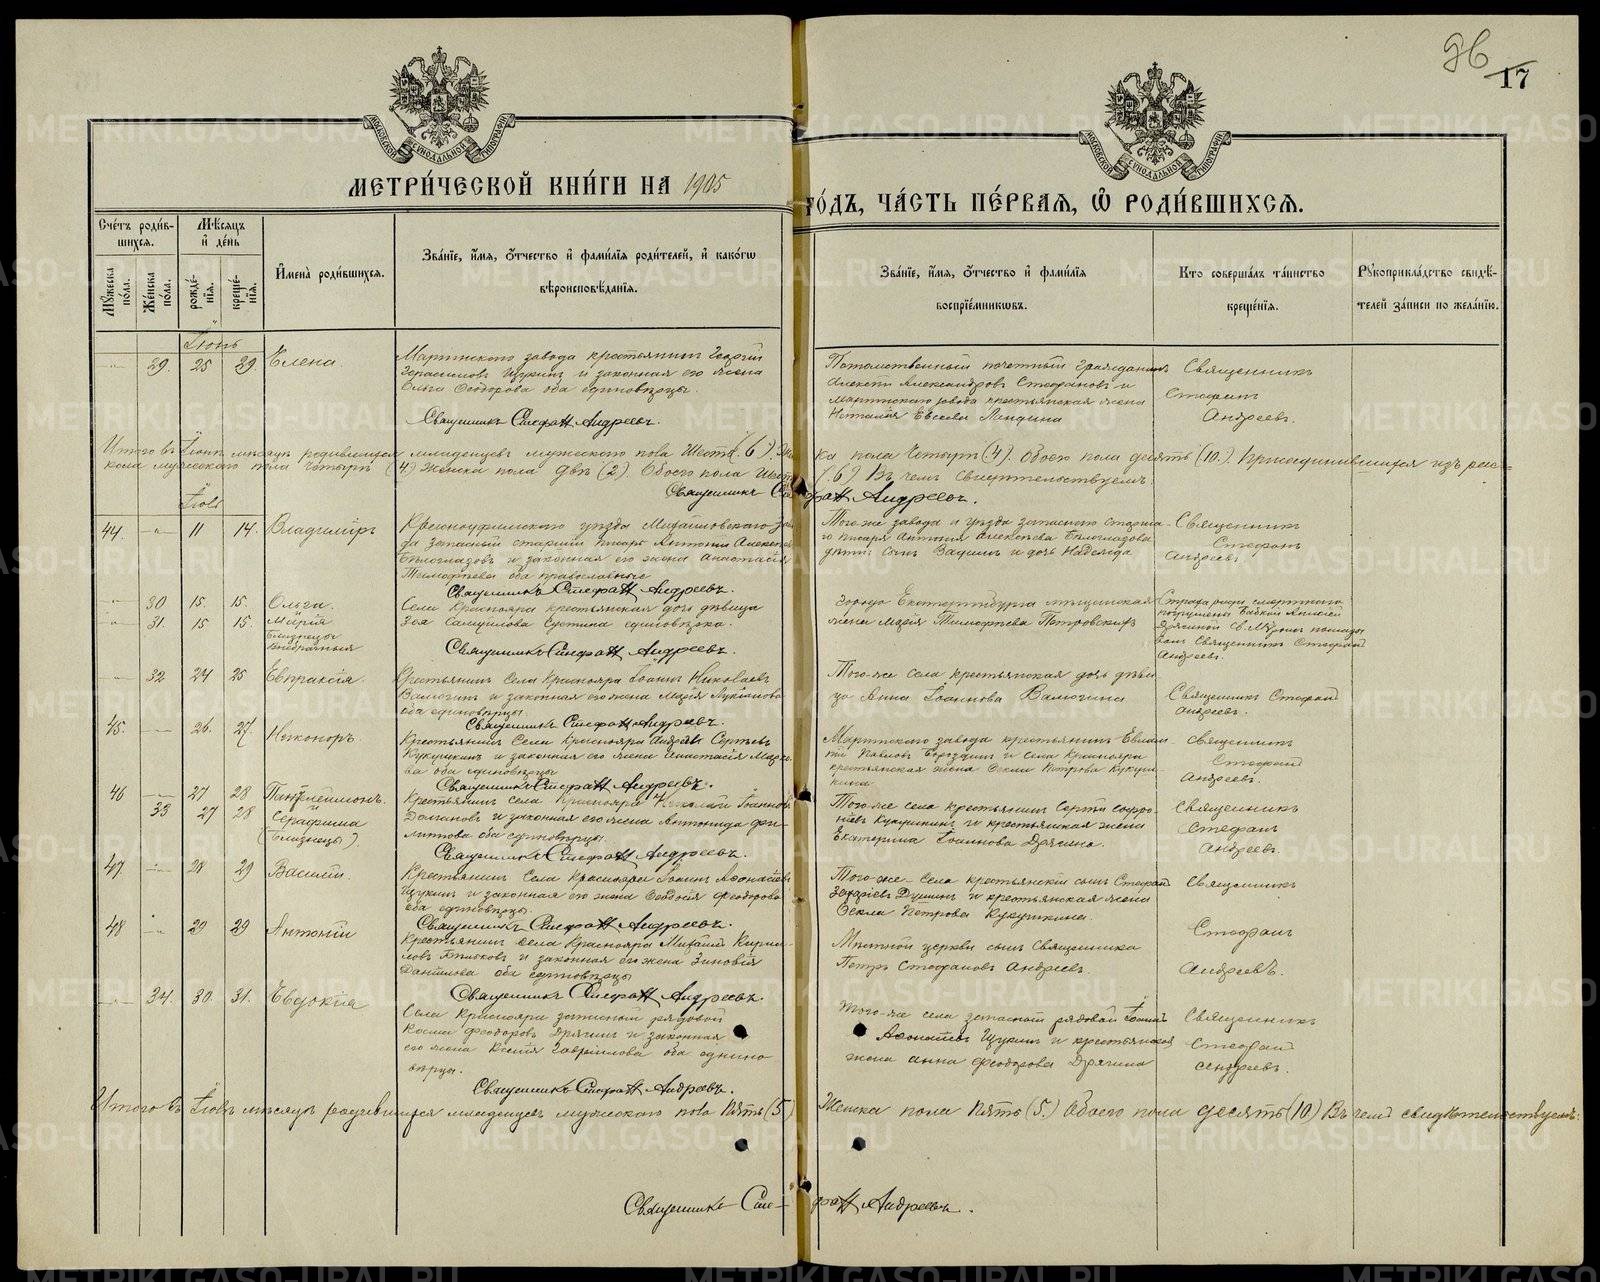 96
17
МЕТРИ́ЧЕСКОЙ КНИ́ГИ НА 1905
ГО́ДЪ, ЧА́СТЬ ПЕ́РВАЯ, Ѡ РОДИ́ВШИХСЯ.
Сче́тъ роди́в-
шихся.
Мѣ́сяцъ
и҆ де́нь
Мꙋ́жеска
по́ла.
Же́нска
по́ла.
рожде́-
нїя.
креще́-
нїя.
И҆мена̀ роди́вшихся.
Зва́нїе, и҆́мя, ѻ҆́тчество и҆ фами́лїя роди́телей, и҆ како́гѡ
вѣроисповѣ́данїя.
Зва́нїе, и҆́мя, ѻ҆́тчество и҆ фами́лїя
воспрїе́мникѡвъ.
Кто соверша́лъ та́инство
креще́нїя.
Рꙋкоприкла́дство свидѣ́-
телей за́писи по жела́нїю.
Іюнь
29. 25 29. Елена.
Мартинского завода крестьянин Георгий
Герасимовъ Щукин и законная его жена
Ольга Феодорова оба единоверцы.
Священникъ Стефан Андреевъ.
Потомственный почетный гражданинъ
Алексей Александров Стефанов и
Мартинского завода крестьянская жена
Наталия Евсеева
Священникъ
Стефан
Андреев.
Итого въ Июне месяце родившихся младенцев мужского пола Шесть (6).
ка пола четыре (4). Обоего пола десять (10.) Присоединившихся из рас=
кола мужского пола Четыре (4) Женска пола две (2). Обоего пола Шесть
(6) Въ чем Свидетельствуемъ:
Священникъ Стефан Андреевъ.
Іюль
44. 11 14. Владимиръ
Красноуфимского уезда Михайловского за-
да запасный старший писарь Антоний Алексеев
Белоглазовъ и законная его жена Анастасия
Тимофеева оба православные
Священникъ Стефан Андреевъ.
Того-же завода и уезда запасного старше-
го писаря Антония Алексеева Белоглазова
дети: сын Вадим и дочь Надежда
Священникъ
Стефанъ
Андреев.
30 15. 15. Ольга.
31. 15 15. Мария
Близнецы
внебрачныя
Села Красноярa крестьянская дочь девица
Зоя Самуилова единоверка.
Священникъ Стефан Андреевъ.
города Екатеринбурга мещанская
жена Мария Тимофеева Петровских
Страха ради смертного
погружена бабкой
Дрягиной Св. Миром помазы
вал Священникъ Стефан
Андреев.
32 24 25 Евпраксия.
Крестьянинъ Села Красноярa Иоаннъ Николаев
Валюгин и законная его жена Мария Лукианова
оба единоверцы.
Священникъ Стефан Андреевъ.
Того-же села крестьянская дочь деви-
ца Анна Иоаннова Валюгина
Священник Стефан
Андреев.
45. 26. 27. Никоноръ.
Крестьянинъ Села Красноярa Андрей Сергеев
Кукушкин и законная его жена Анастасия Марко-
ва оба единоверцы
Священникъ Стефан Андреевъ.
Мартинского завода крестьянин
Павлов Бороздин и села Красноярa
крестьянская жена Фекла Петрова Кукуш-
кина
Священникъ
Стефан
Андреев.
46 27 28 Пантелеимонъ.
33 27 28 Серафима
(Близнецы).
Крестьянин села Красноярa Николай Иоаннов
Долганов и законная его жена Антонида Фи-
липпова оба единоверцы.
Священникъ Стефан Андреевъ.
Того-же села крестьянин Сергей Софро-
ниев Кукушкин и крестьянская жена
Екатерина Иоаннова Дрягина.
Священникъ
Стефан
Андреев.
47. 28 29 Василий.
Крестьянин Села Красноярa Иоанн Афанасьев
Щукин и законная его жена Феодосия Феодорова
оба единоверцы.
Священникъ Стефан Андреевъ.
Того-же села крестьянский сын Стефан
Душин и крестьянская жена
Фекла Петрова Кукушкина.
Священникъ
48 29 29 Антоний
Крестьянин села Красноярa Михаил Кирил-
лов и законная его жена Зиновия
Данилова оба единоверцы
Священникъ Стефан Андреевъ.
Местной церкви сын Священника
Петръ Стефановъ Андреевъ.
Стефанъ
Андреевъ.
34. 30. 31. Евдокия
Села Красноярa запасный рядовой
Косма Феодоровъ Дрягин и законная
его жена Ксения Гавриилова оба едино-
верцы.
Священникъ Стефан Андреевъ.
Того-же села запасный рядовой Иоанн
Афанасьев Щукин и крестьянская
жена Анна Феодорова Дрягина
Священникъ
Стефан
Андреев.
Итого въ Июле месяце родившихся младенцев мужеского пола Пять (5)
Женска пола Пять (5.) Обоего пола десять (10) Въ чем свидетельствуемъ:
Священникъ Стефан Андреевъ.
METRIKI.GASO-URAL.RU